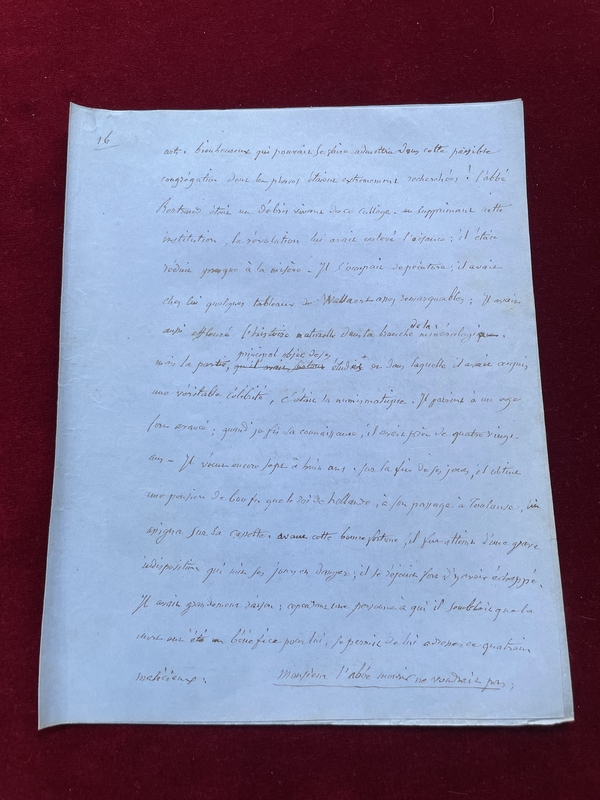 16
art. bienheureux qui pouvait se faire admettre dans cette paisible
congrégation dont les places étaient extrêmement recherchées ! l'abbé
Bertrand étoit un débris vivant de ce collège. en supprimant cette
institution, la révolution lui avait enlevé l'aisance ; il étoit
réduit presque à la misère. Il s'occupait de peinture ; il avait
chez lui quelques tableaux de assez remarquables ; Il avait
aussi effleuré l'histoire naturelle dans la branche de la minéralogie.
mais la partie, qu'il avait surtout principal objet de ses études et dans laquelle il avait acquis
une véritable célébrité, c'étoit la numismatique. Il parvint à un age
fort avancé ; quand je fis sa connaissance, il avait près de quatre vingt
ans — Il vécut encore sept à huit ans. Sur la fin de ses jours, il obtint
une pension de 600 fr que le roi de hollande, à son passage à Toulouse, lui
assigna sur sa cassette. avant cette bonne fortune, il fut atteint d'une grave
indisposition qui mit ses jours en danger ; il se réjouit fort d'y avoir échappé.
Il avait grandement raison ; cependant une personne à qui il sembloit que la
mort eut été un bénéfice pour lui, se permit de lui adresser ce quatrain
malicieux :
Monsieur l'abbé mourir ne voudrait pas ;